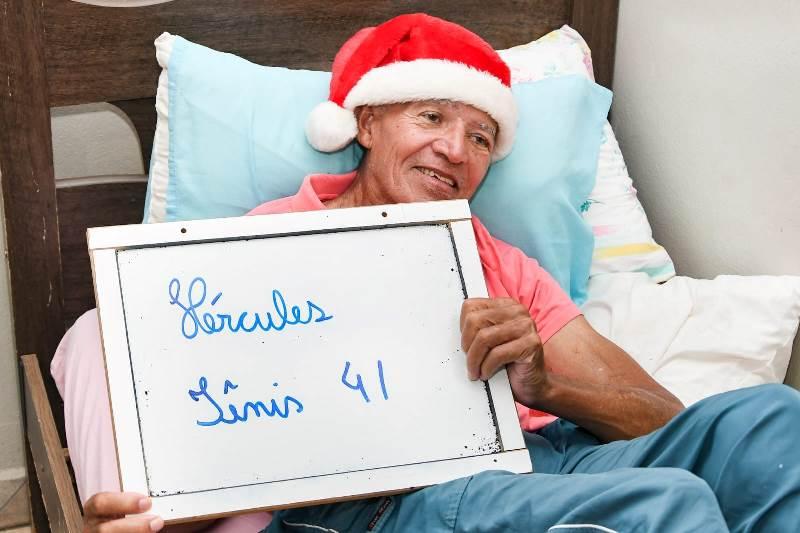 Hércules
Tênis 41